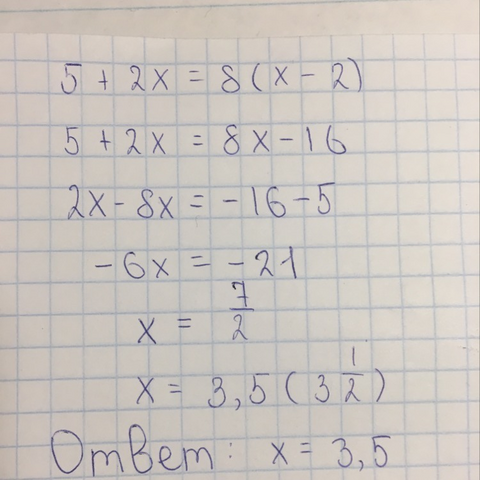 5 + 2x = 8(x - 2)
5 + 2x = 8x - 16
2x - 8x = -16 - 5
-6x = -21
x = 7/2
x = 3,5 (3 1/2)
Ответ: x = 3,5